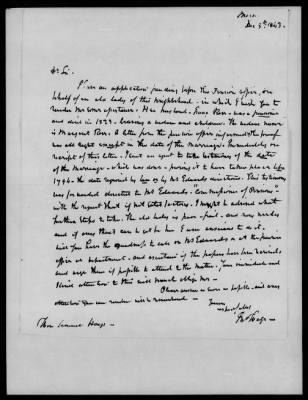 Dec 9th 1843.
Dr Sir.
I have an application pending before the Pension office, on
behalf of an old lady of this neighborhood - in which I beg you to
render me some assistance. Her husband, Ross - was a pensioner
and died in 1823. leaving a widow and children. The widows name
is Margaret Ross. A letter from the pension office informed me the proof
was all right except in the date of the Marriage. Immediately on
receipt of this letter. I sent an agent to take testimony of the date
of the Marriage - which was done - proving it to have taken place before
1794 - the date required by law as by Mr Edwards directions. This testimony
was forwarded directed to Mr Edwards, "Com missioner of Pensions"
with the request that if not satisfactory. I might be advised what
further steps to take. The old lady is poor - frail - and very needy
and if any thing can be got for her I am anxious to do it.
will you have the goodness to call on Mr Edwards or at the pension
office or department - and ascertain if the papers have been received
and urge them if possible to attend to the matter. Your immediate and
attention to this will much oblige me.
Please answer as soon as possible. and any
attention you can render will be remembered -
Yours
respectfully
Hon Hays -